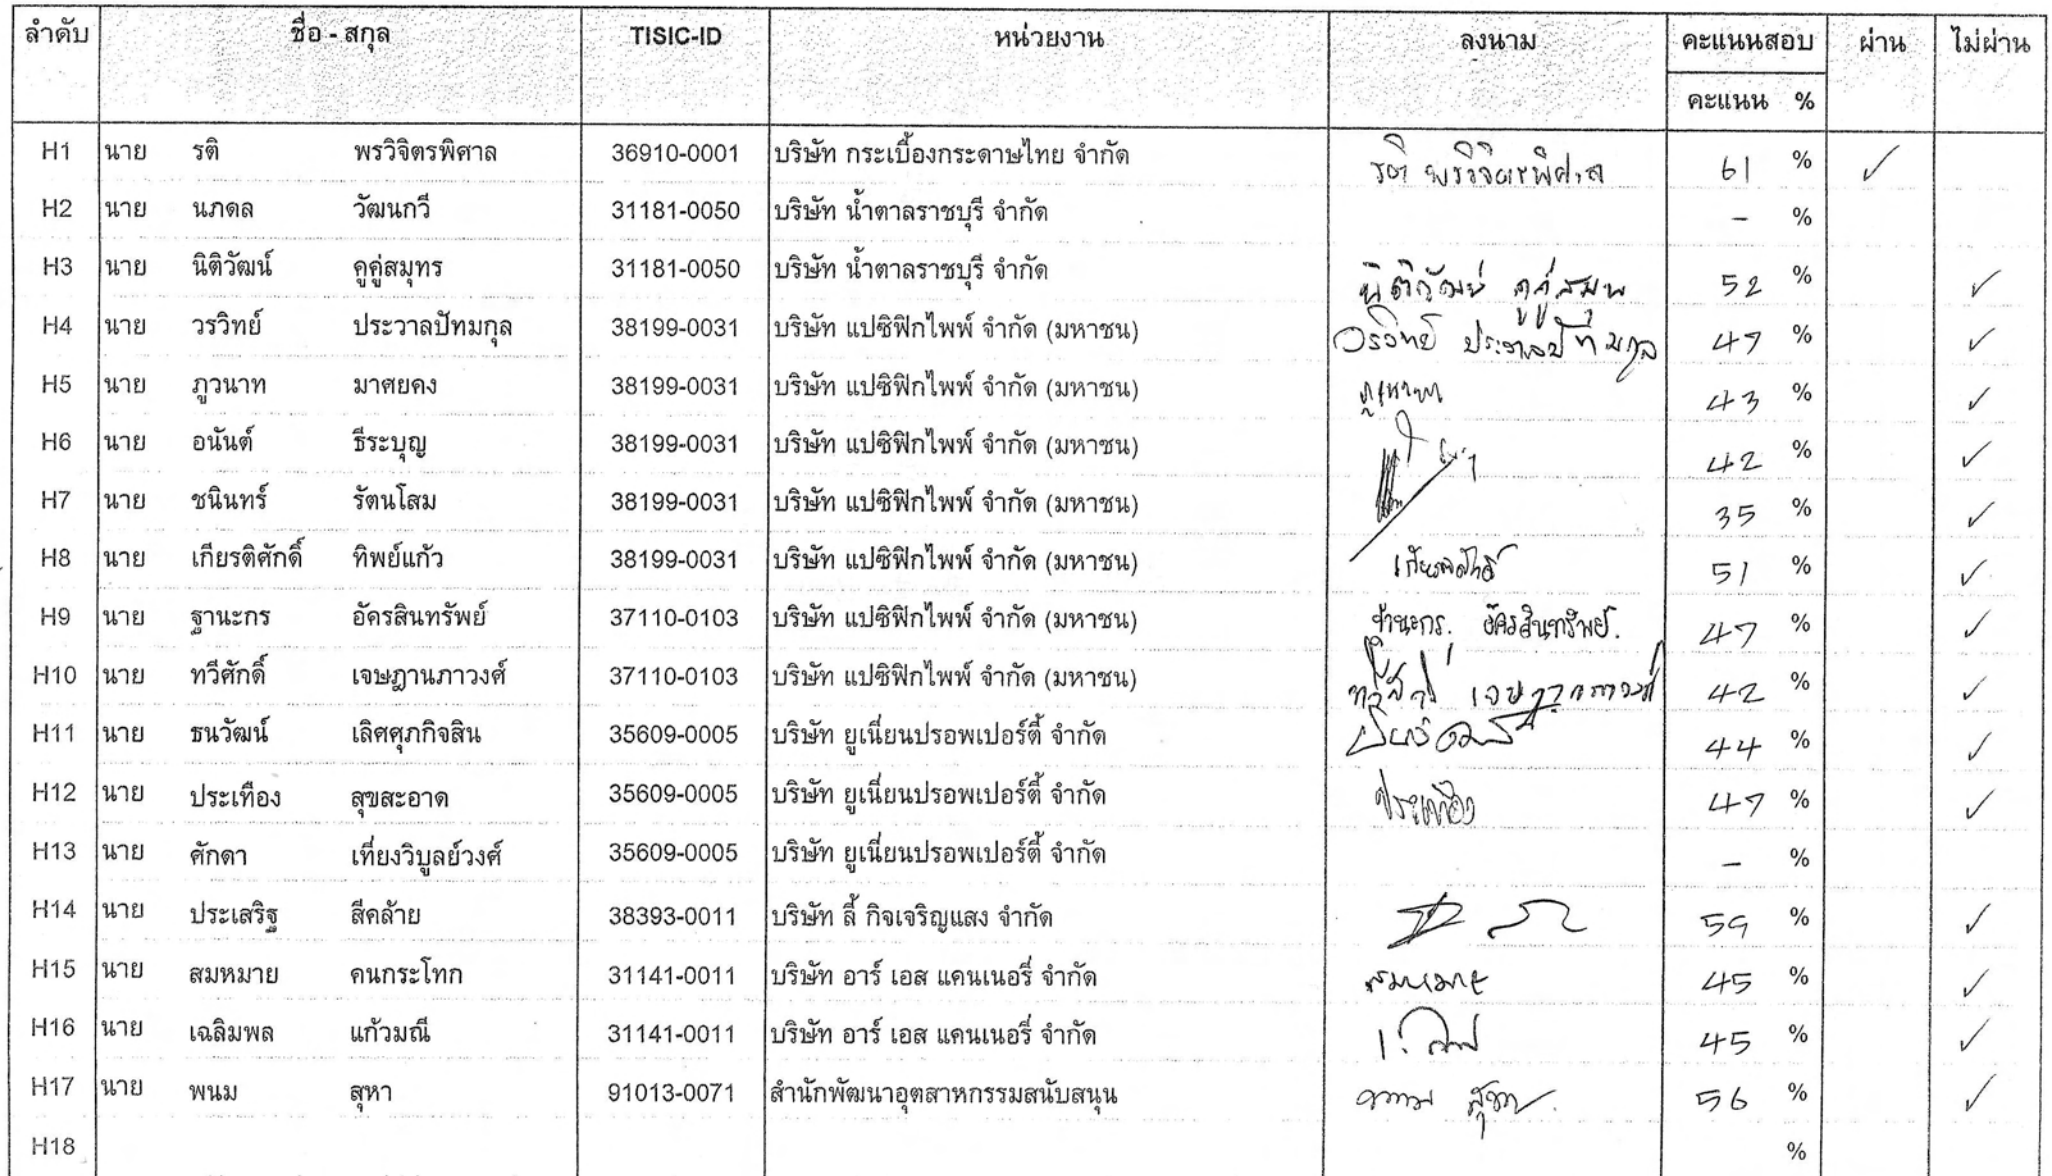 ลำดับ ชื่อ - สกุล TISIC-ID หน่วยงาน ลงนาม คะแนนสอบ ผ่าน ไม่ผ่าน
คะแนน %
H1 นาย รติ พรวิจิตรพิศาล 36910-0001 บริษัท กระเบื้องกระดาษไทย จำกัด รติ พรวิจิตรพิศาล 61 % ✓
H2 นาย นภดล วัฒนกวี 31181-0050 บริษัท น้ำตาลราชบุรี จำกัด - %
H3 นาย นิติวัฒน์ คูคู่สมุทร 31181-0050 บริษัท น้ำตาลราชบุรี จำกัด นิติวัฒน์ คูคู่สมุทร 52 % ✓
H4 นาย วรวิทย์ ประวาลปัทมกุล 38199-0031 บริษัท แปซิฟิกไพพ์ จำกัด (มหาชน) วรวิทย์ ประวาลปัทมกุล 47 % ✓
H5 นาย ภูวนาท มาศยคง 38199-0031 บริษัท แปซิฟิกไพพ์ จำกัด (มหาชน) ภูวนาท 43 % ✓
H6 นาย อนันต์ ธีระบุญ 38199-0031 บริษัท แปซิฟิกไพพ์ จำกัด (มหาชน) 42 % ✓
H7 นาย ชนินทร์ รัตนโสม 38199-0031 บริษัท แปซิฟิกไพพ์ จำกัด (มหาชน) 35 % ✓
H8 นาย เกียรติศักดิ์ ทิพย์แก้ว 38199-0031 บริษัท แปซิฟิกไพพ์ จำกัด (มหาชน) เกียรติศักดิ์ 51 % ✓
H9 นาย ฐานะกร อัครสินทรัพย์ 37110-0103 บริษัท แปซิฟิกไพพ์ จำกัด (มหาชน) ฐานะกร. อัครสินทรัพย์. 47 % ✓
H10 นาย ทวีศักดิ์ เจษฎานภาวงศ์ 37110-0103 บริษัท แปซิฟิกไพพ์ จำกัด (มหาชน) ทวีศักดิ์ เจษฎานภาวงศ์ 42 % ✓
H11 นาย ธนวัฒน์ เลิศศุภกิจสิน 35609-0005 บริษัท ยูเนี่ยนปรอพเปอร์ตี้ จำกัด 44 % ✓
H12 นาย ประเทือง สุขสะอาด 35609-0005 บริษัท ยูเนี่ยนปรอพเปอร์ตี้ จำกัด ประเทือง 47 % ✓
H13 นาย ศักดา เที่ยงวิบูลย์วงศ์ 35609-0005 บริษัท ยูเนี่ยนปรอพเปอร์ตี้ จำกัด - %
H14 นาย ประเสริฐ สีคล้าย 38393-0011 บริษัท ลี้ กิจเจริญแสง จำกัด 59 % ✓
H15 นาย สมหมาย คนกระโทก 31141-0011 บริษัท อาร์ เอส แคนเนอรี่ จำกัด สมหมาย 45 % ✓
H16 นาย เฉลิมพล แก้วมณี 31141-0011 บริษัท อาร์ เอส แคนเนอรี่ จำกัด 45 % ✓
H17 นาย พนม สุหา 91013-0071 สำนักพัฒนาอุตสาหกรรมสนับสนุน พนม สุหา 56 % ✓
H18 %